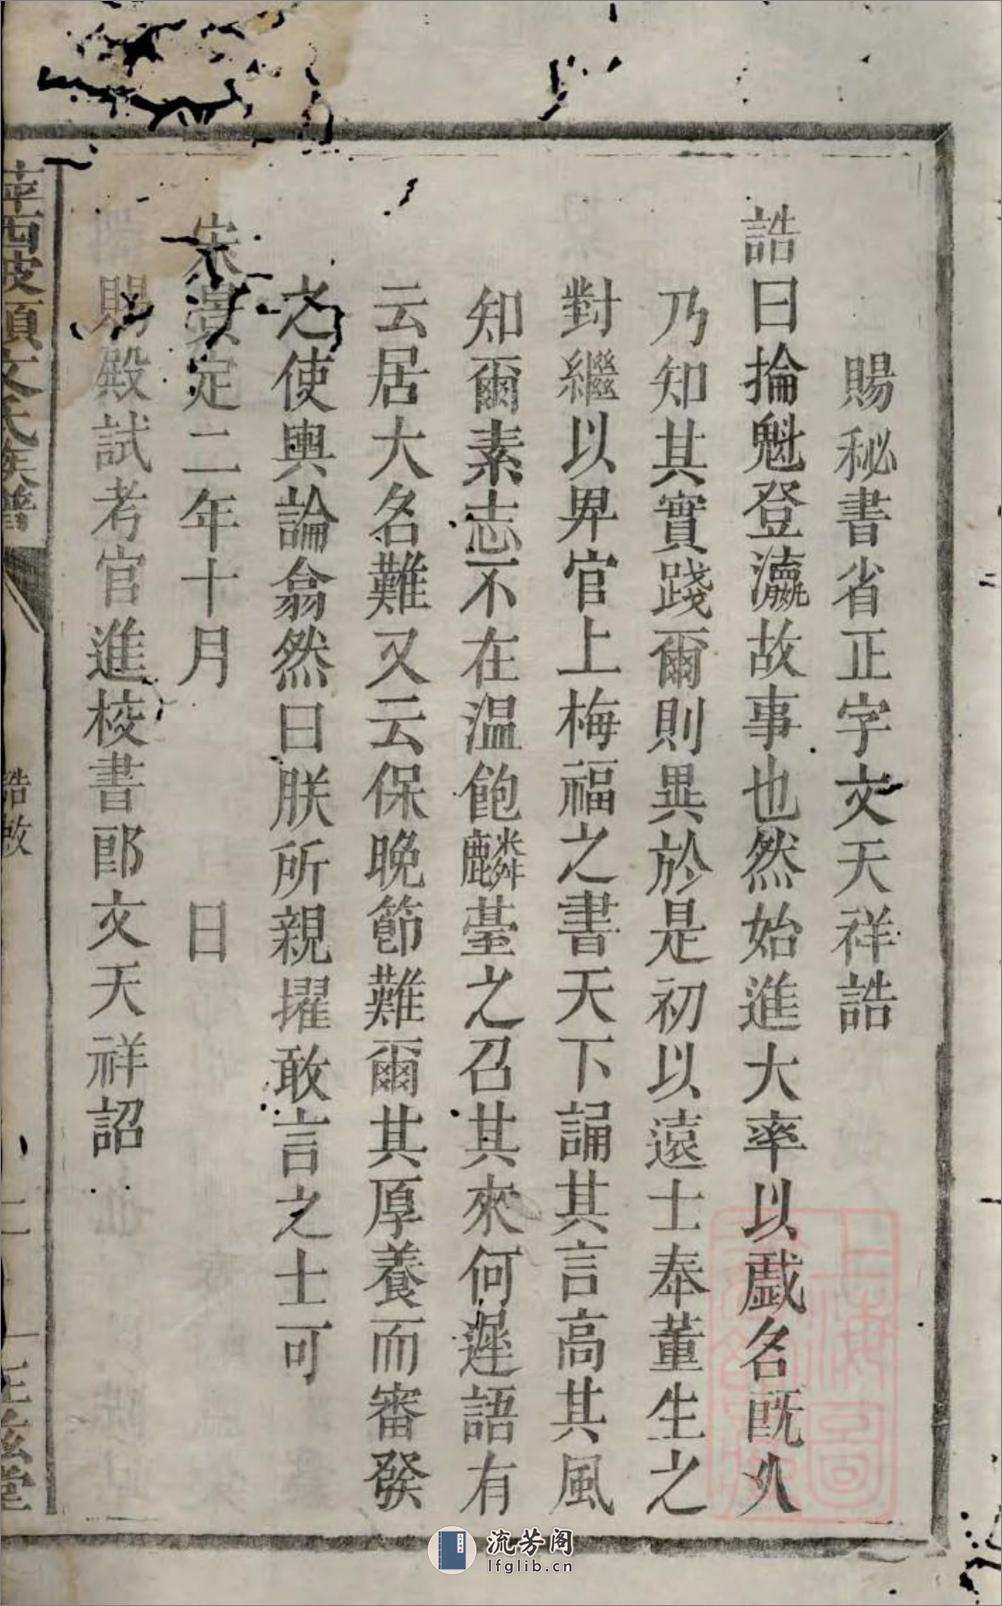 賜秘書省正字文天祥誥
誥曰掄魁登瀛故事也然始進大率以戲名既久
乃知其實踐爾則異於是初以遠士奉董生之
對繼以畀官上梅福之書天下誦其言高其風
知爾素志不在温飽麟䑓之召其來何遲語有
云居大名難又云保晚節難爾其厚養而審發
之使輿論翕然曰朕所親擢敢言之士可
宋景定二年十月 日
賜殿試考官進校書郎文天祥詔
萍西坡頭文氏族譜 誥敕 二 正󠄁
上海圖
流芳阁
lfglib.cn